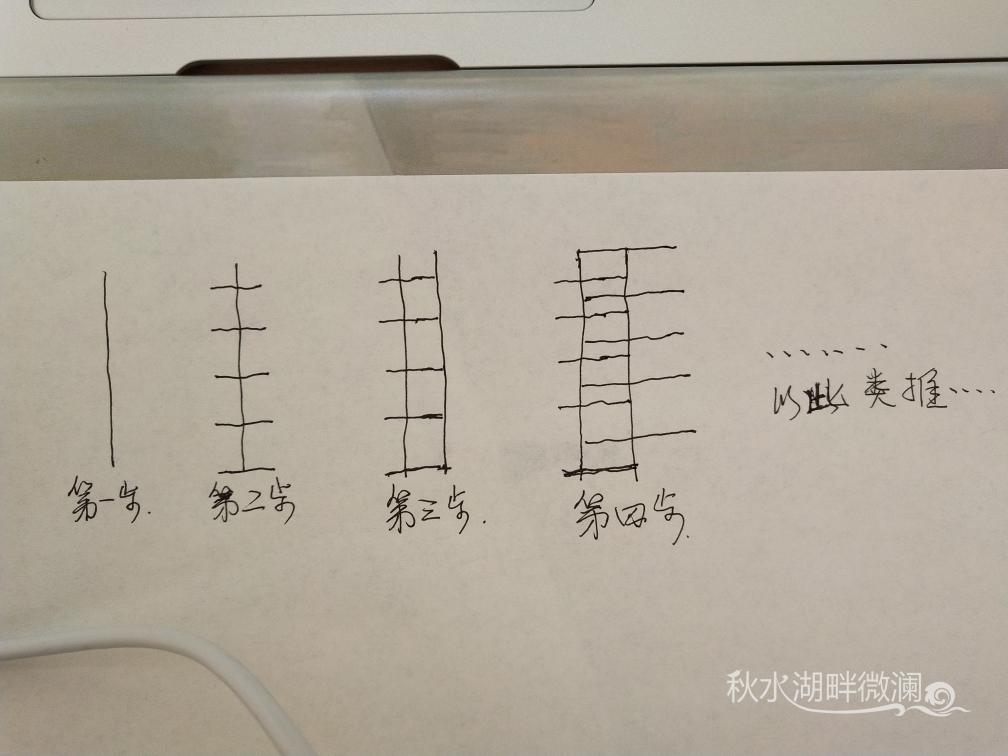 第一步.
第二步
第三步.
第四步.
.......
以此类推....
秋水湖畔微澜